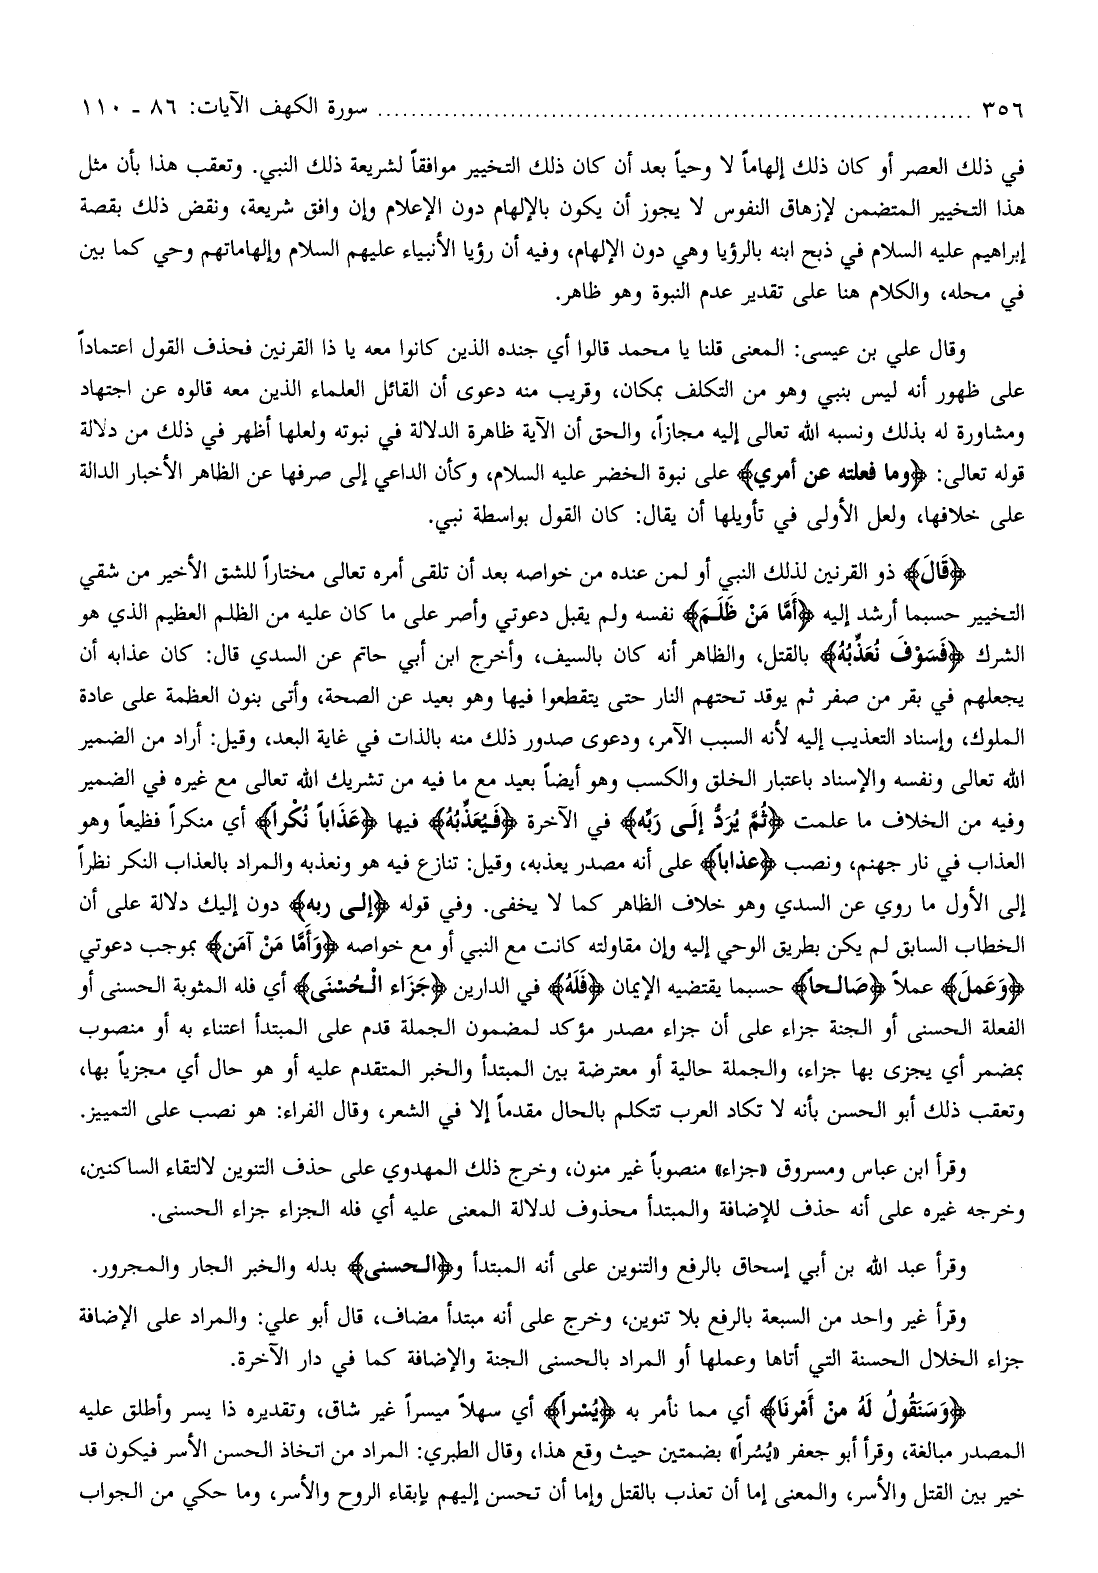 ٣٥٦ ........................................ سورة الكهف الآيات: ٨٦ ـ ١١٠
في ذلك العصر أو كان ذلك إلهاماً لا وحياً بعد أن كان ذلك التخيير موافقاً لشريعة ذلك النبي. وتعقب هذا بأن مثل
هذا التخيير المتضمن لإزهاق النفوس لا يجوز أن يكون بالإلهام دون الإعلام وإن وافق شريعة، ونقض ذلك بقصة
إبراهيم عليه السلام في ذبح ابنه بالرؤيا وهي دون الإلهام، وفيه أن رؤيا الأنبياء عليهم السلام وإلهاماتهم وحي كما بين
في محله، والكلام هنا على تقدير عدم النبوة وهو ظاهر.
وقال علي بن عيسى: المعنى قلنا يا محمد قالوا أي جنده الذين كانوا معه يا ذا القرنين فحذف القول اعتماداً
على ظهور أنه ليس بنبي وهو من التكلف بمكان، وقريب منه دعوى أن القائل العلماء الذين معه قالوه عن اجتهاد
ومشاورة له بذلك ونسبه الله تعالى إليه مجازاً، والحق أن الآية ظاهرة الدلالة في نبوته ولعلها أظهر في ذلك من دلالة
قوله تعالى: ﴿وما فعلته عن أمري﴾ على نبوة الخضر عليه السلام، وكأن الداعي إلى صرفها عن الظاهر الأخبار الدالة
على خلافها، ولعل الأولى في تأويلها أن يقال: كان القول بواسطة نبي.
﴿قَالَ﴾ ذو القرنين لذلك النبي أو لمن عنده من خواصه بعد أن تلقى أمره تعالى مختاراً للشق الأخير من شقي
التخيير حسبما أرشد إليه ﴿أَمَّا مَنْ ظَلَمَ﴾ نفسه ولم يقبل دعوتي وأصر على ما كان عليه من الظلم العظيم الذي هو
الشرك ﴿فَسَوْفَ نُعَذِّبُهُ﴾ بالقتل، والظاهر أنه كان بالسيف، وأخرج ابن أبي حاتم عن السدي قال: كان عذابه أن
يجعلهم في بقر من صفر ثم يوقد تحتهم النار حتى يتقطعوا فيها وهو بعيد عن الصحة، وأتى بنون العظمة على عادة
الملوك، وإسناد التعذيب إليه لأنه السبب الآمر، ودعوى صدور ذلك منه بالذات في غاية البعد، وقيل: أراد من الضمير
الله تعالى ونفسه والإسناد باعتبار الخلق والكسب وهو أيضاً بعيد مع ما فيه من تشريك الله تعالى مع غيره في الضمير
وفيه من الخلاف ما علمت ﴿ثُمَّ يُرَدُّ إِلَى رَبِّه﴾ في الآخرة ﴿فَيُعَذِّبُهُ﴾ فيها ﴿عَذَاباً نُكْراً﴾ أي منكراً فظيعاً وهو
العذاب في نار جهنم، ونصب ﴿عذاباً﴾ على أنه مصدر يعذبه، وقيل: تنازع فيه هو ونعذبه والمراد بالعذاب النكر نظراً
إلى الأول ما روي عن السدي وهو خلاف الظاهر كما لا يخفى. وفي قوله ﴿إلى ربه﴾ دون إليك دلالة على أن
الخطاب السابق لم يكن بطريق الوحي إليه وإن مقاولته كانت مع النبي أو مع خواصه ﴿وَأَمَّا مَنْ آمَن﴾ بموجب دعوتي
﴿وَعَملَ﴾ عملاً ﴿صَالحاً﴾ حسبما يقتضيه الإيمان ﴿فَلَهُ﴾ في الدارين ﴿جَزَاء الْحُسْنَى﴾ أي فله المثوبة الحسنى أو
الفعلة الحسنى أو الجنة جزاء على أن جزاء مصدر مؤكد لمضمون الجملة قدم على المبتدأ اعتناء به أو منصوب
بمضمر أي يجزى بها جزاء، والجملة حالية أو معترضة بين المبتدأ والخبر المتقدم عليه أو هو حال أي مجزياً بها،
وتعقب ذلك أبو الحسن بأنه لا تكاد العرب تتكلم بالحال مقدماً إلا في الشعر، وقال الفراء: هو نصب على التمييز.
وقرأ ابن عباس ومسروق «جزاء» منصوباً غير منون، وخرج ذلك المهدوي على حذف التنوين لالتقاء الساكنين،
وخرجه غيره على أنه حذف للإضافة والمبتدأ محذوف لدلالة المعنى عليه أي فله الجزاء جزاء الحسنى.
وقرأ عبد الله بن أبي إسحاق بالرفع والتنوين على أنه المبتدأ و﴿الحسنى﴾ بدله والخبر الجار والمجرور.
وقرأ غير واحد من السبعة بالرفع بلا تنوين، وخرج على أنه مبتدأ مضاف، قال أبو علي: والمراد على الإضافة
جزاء الخلال الحسنة التي أتاها وعملها أو المراد بالحسنى الجنة والإضافة كما في دار الآخرة.
﴿وَسَنَقُولُ لَهُ منْ أَمْرنَا﴾ أي مما نأمر به ﴿يُسْراً﴾ أي سهلاً ميسراً غير شاق، وتقديره ذا يسر وأطلق عليه
المصدر مبالغة، وقرأ أبو جعفر «يُسُراً» بضمتين حيث وقع هذا، وقال الطبري: المراد من اتخاذ الحسن الأسر فيكون قد
خير بين القتل والأسر، والمعنى إما أن تعذب بالقتل وإما أن تحسن إليهم بإبقاء الروح والأسر، وما حكي من الجواب